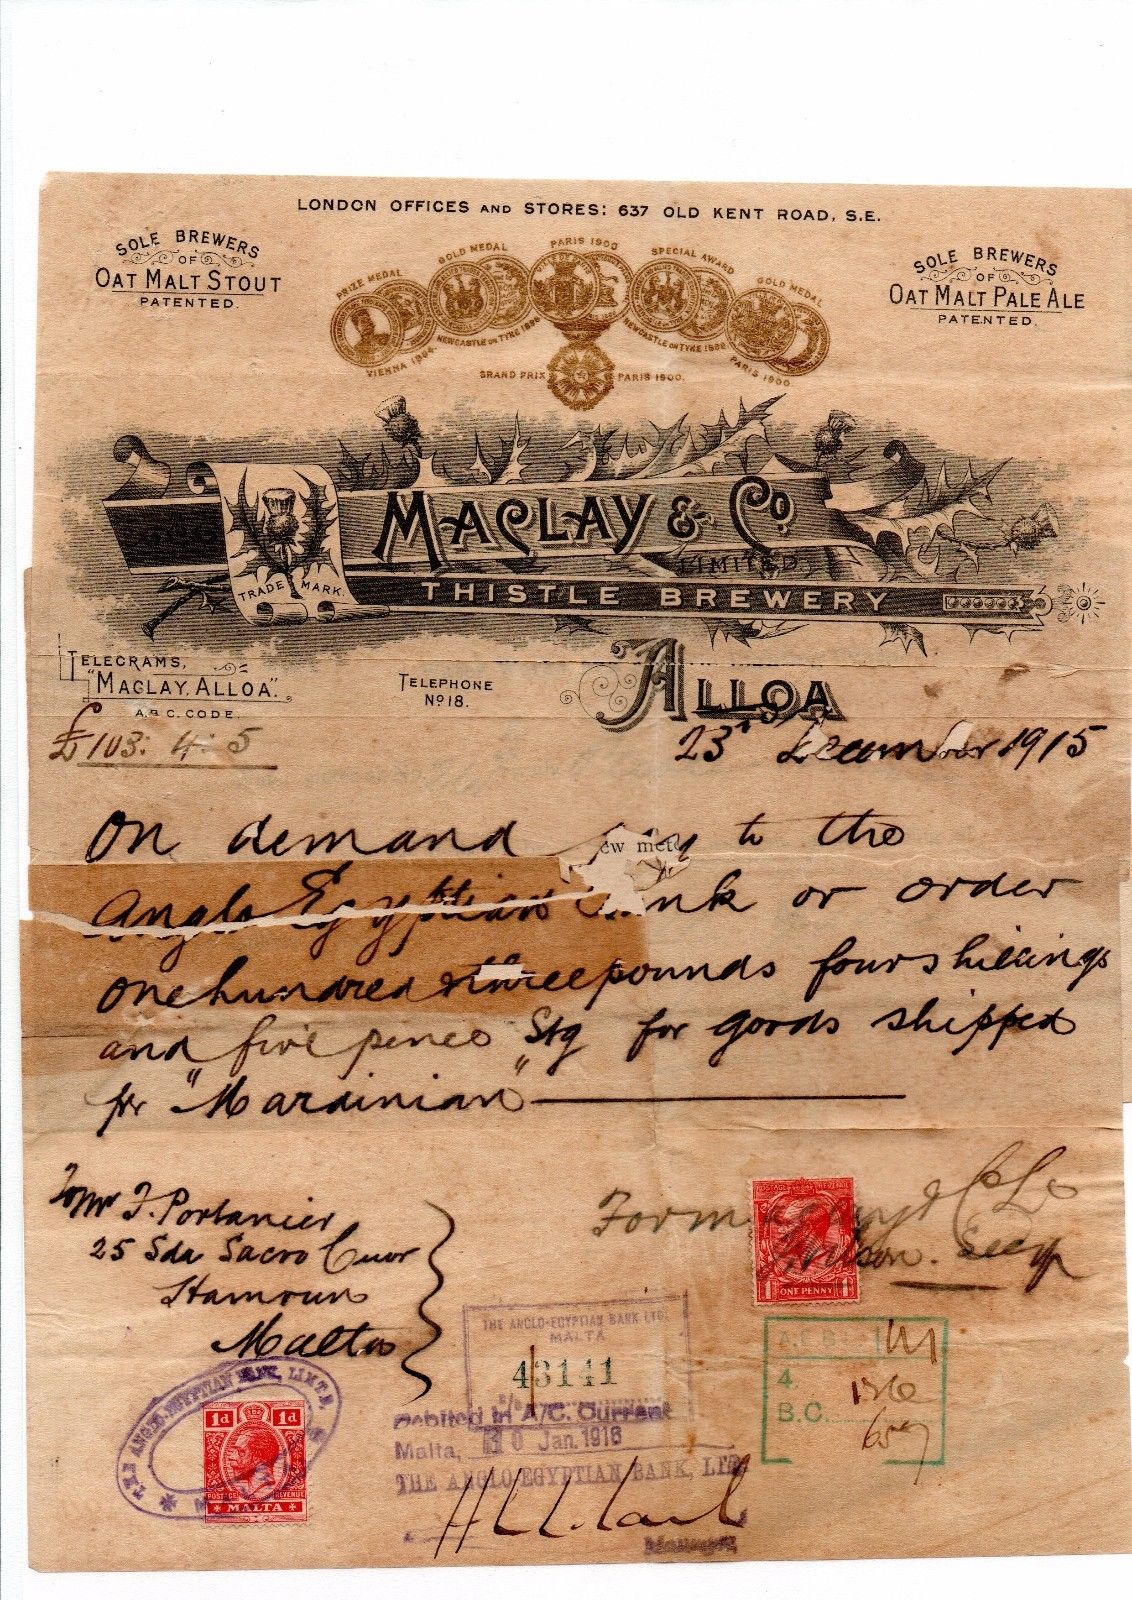 LONDON OFFICES AND STORES: 637 OLD KENT ROAD, S.E.
SOLE BREWERS
OF
OAT MALT STOUT
PATENTED.
PRIZE MEDAL
GOLD MEDAL
PARIS 1900
SPECIAL AWARD
GOLD MEDAL
VIENNA 1904.
NEWCASTLE ON TYNE
NEWCASTLE ON TYNE
PARIS 1900
GRAND PRIX
PARIS 1900.
SOLE BREWERS
OF
OAT MALT PALE ALE
PATENTED.
TRADE MARK.
MACLAY & Co.
LIMITED
THISTLE BREWERY
ALLOA
TELEGRAMS,
"MACLAY, ALLOA".
A.B.C. CODE.
TELEPHONE
No 18.
£103: 4: 5
23rd December 1915
On demand to the
Anglo Egyptian Bank or order
one hundred & three pounds four shillings
and five pence Stg for goods shipped
per "Mardinian"
ew met
To Mr F. Portanier
25 Sda Sacro Cuor
Hamrun
Malta
For Maclay & Co Ld
Wilson. Secy
POSTAGE REVENUE
ONE PENNY
THE ANGLO-EGYPTIAN BANK LTD.
MALTA
43141
Debited in A/C. Current
Malta, 10 Jan. 1916
THE ANGLO EGYPTIAN BANK, LTD
Manager
A.E.B.
4.
B.C.
THE ANGLO-EGYPTIAN BANK, LIMTD.
MALTA
1d 1d
POSTAGE REVENUE
MALTA